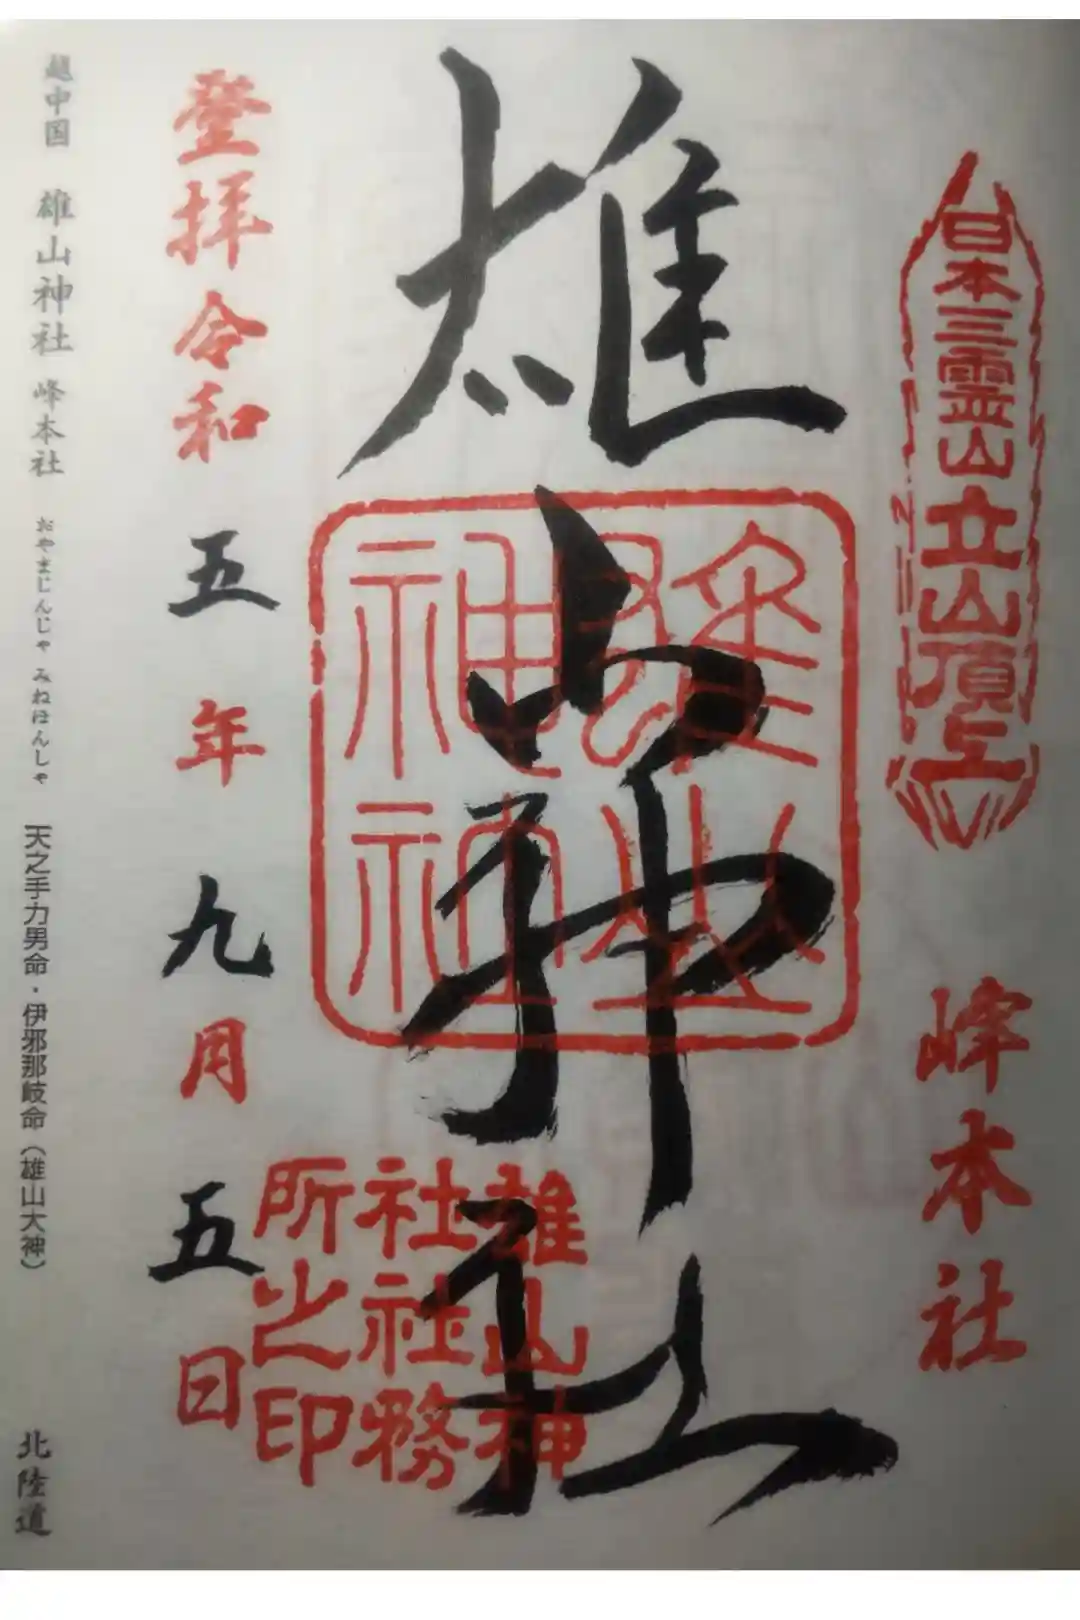 日本三霊山立山頂上
峰本社
雄山神社
雄山神社
雄山神社社務所之印
登拝令和五年九月五日
越中国 雄山神社 峰本社 おやまじんじゃ みねほんしゃ 天之手力男命・伊邪那岐命（雄山大神） 北陸道